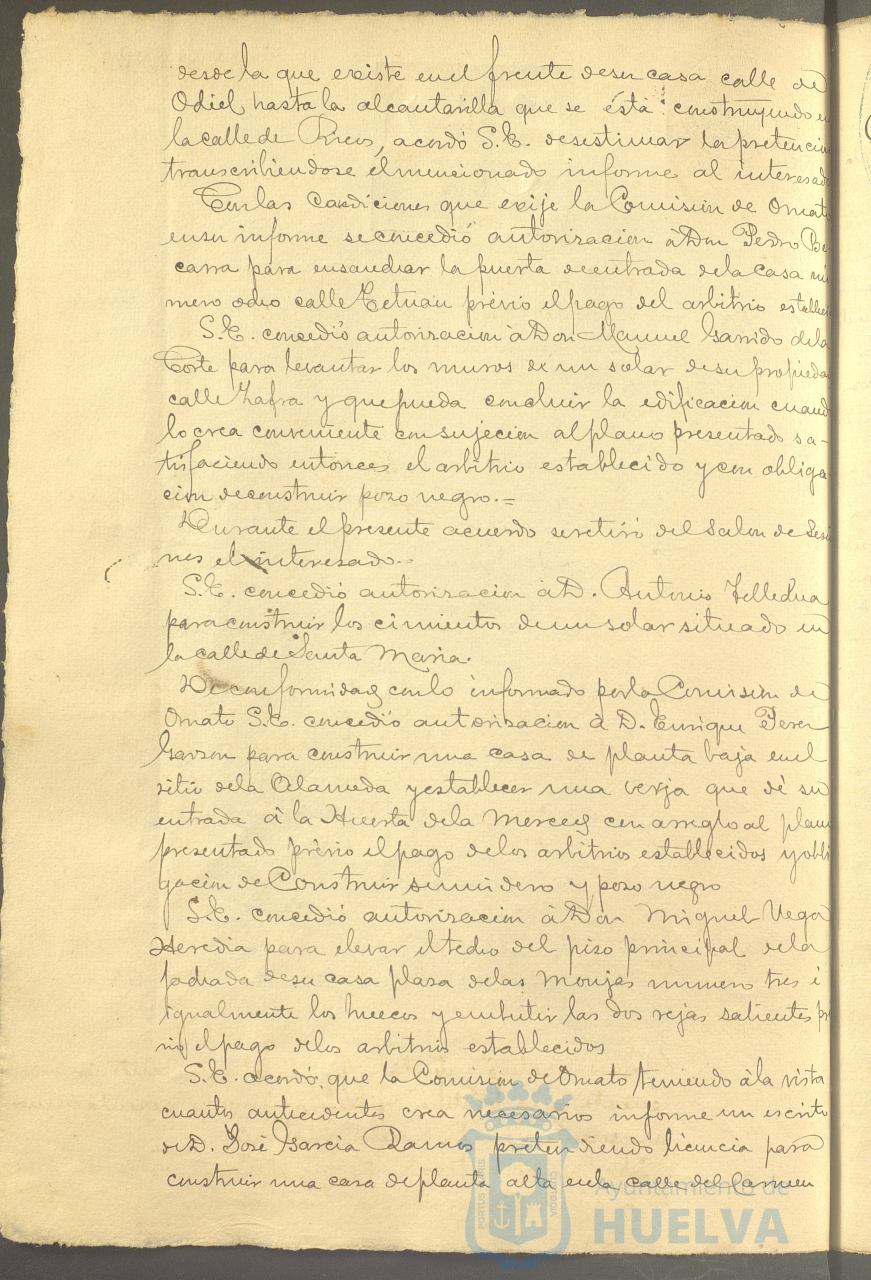 desde la que existe en el frente de su casa calle de
Odiel hasta la alcantarilla que se está construyendo en
la calle de Ricos, acordó S.E. desestimar la pretencion
transcribiendose el mencionado informe al interesado
Con las condiciones que exije la Comision de Ornato
en su informe se concedió autorizacion à Don Pedro Be-
carra para ensanchar la puerta de entrada de la casa nu
mero ocho calle Tetuan prévio el pago del arbitrio estableci
S.E. concedió autorizacion à Don Manuel Garrido de la
Corte para levantar los muros de un solar de su propiedad
calle Zafra y que pueda concluir la edificacion cuando
lo crea conveniente con sujecion al plano presentado sa-
tisfaciendo entonces el arbitrio establecido y con obliga
cion de construir pozo negro.=
Durante el presente acuerdo se retiró del Salon de Sesi
nes el interesado.
S.E. concedió autorizacion à D. Antonio
para construir los cimientos de un solar situado en
la calle de Santa Maria.
De conformidad con lo informado por la Comision de
Ornato S.E. concedió autorizacion à D. Enrique Perez
Garzon para construir una casa de planta baja en el
sitio de la Alameda y establecer una verja que dé su
entrada à la Huerta de la Merced con arreglo al plano
presentado prévio el pago de los arbitrios establecidos y obli
gacion de Construir sumidero y pozo negro
S.E. concedió autorizacion à Don Miguel Vega
Heredia para elevar el techo del piso principal de la
fachada de su casa plaza de las Monjas numero tres é
igualmente los huecos y embutir las dos rejas salientes pré
vio el pago de los arbitrios establecidos
S.E. acordó, que la Comision de Ornato teniendo à la vista
cuantos antecedentes crea necesarios informe un escrito
de D. José Garcia Ramos pretendiendo licencia para
construir una casa de planta alta en la calle del Carmen
Ayuntamiento de
HUELVA